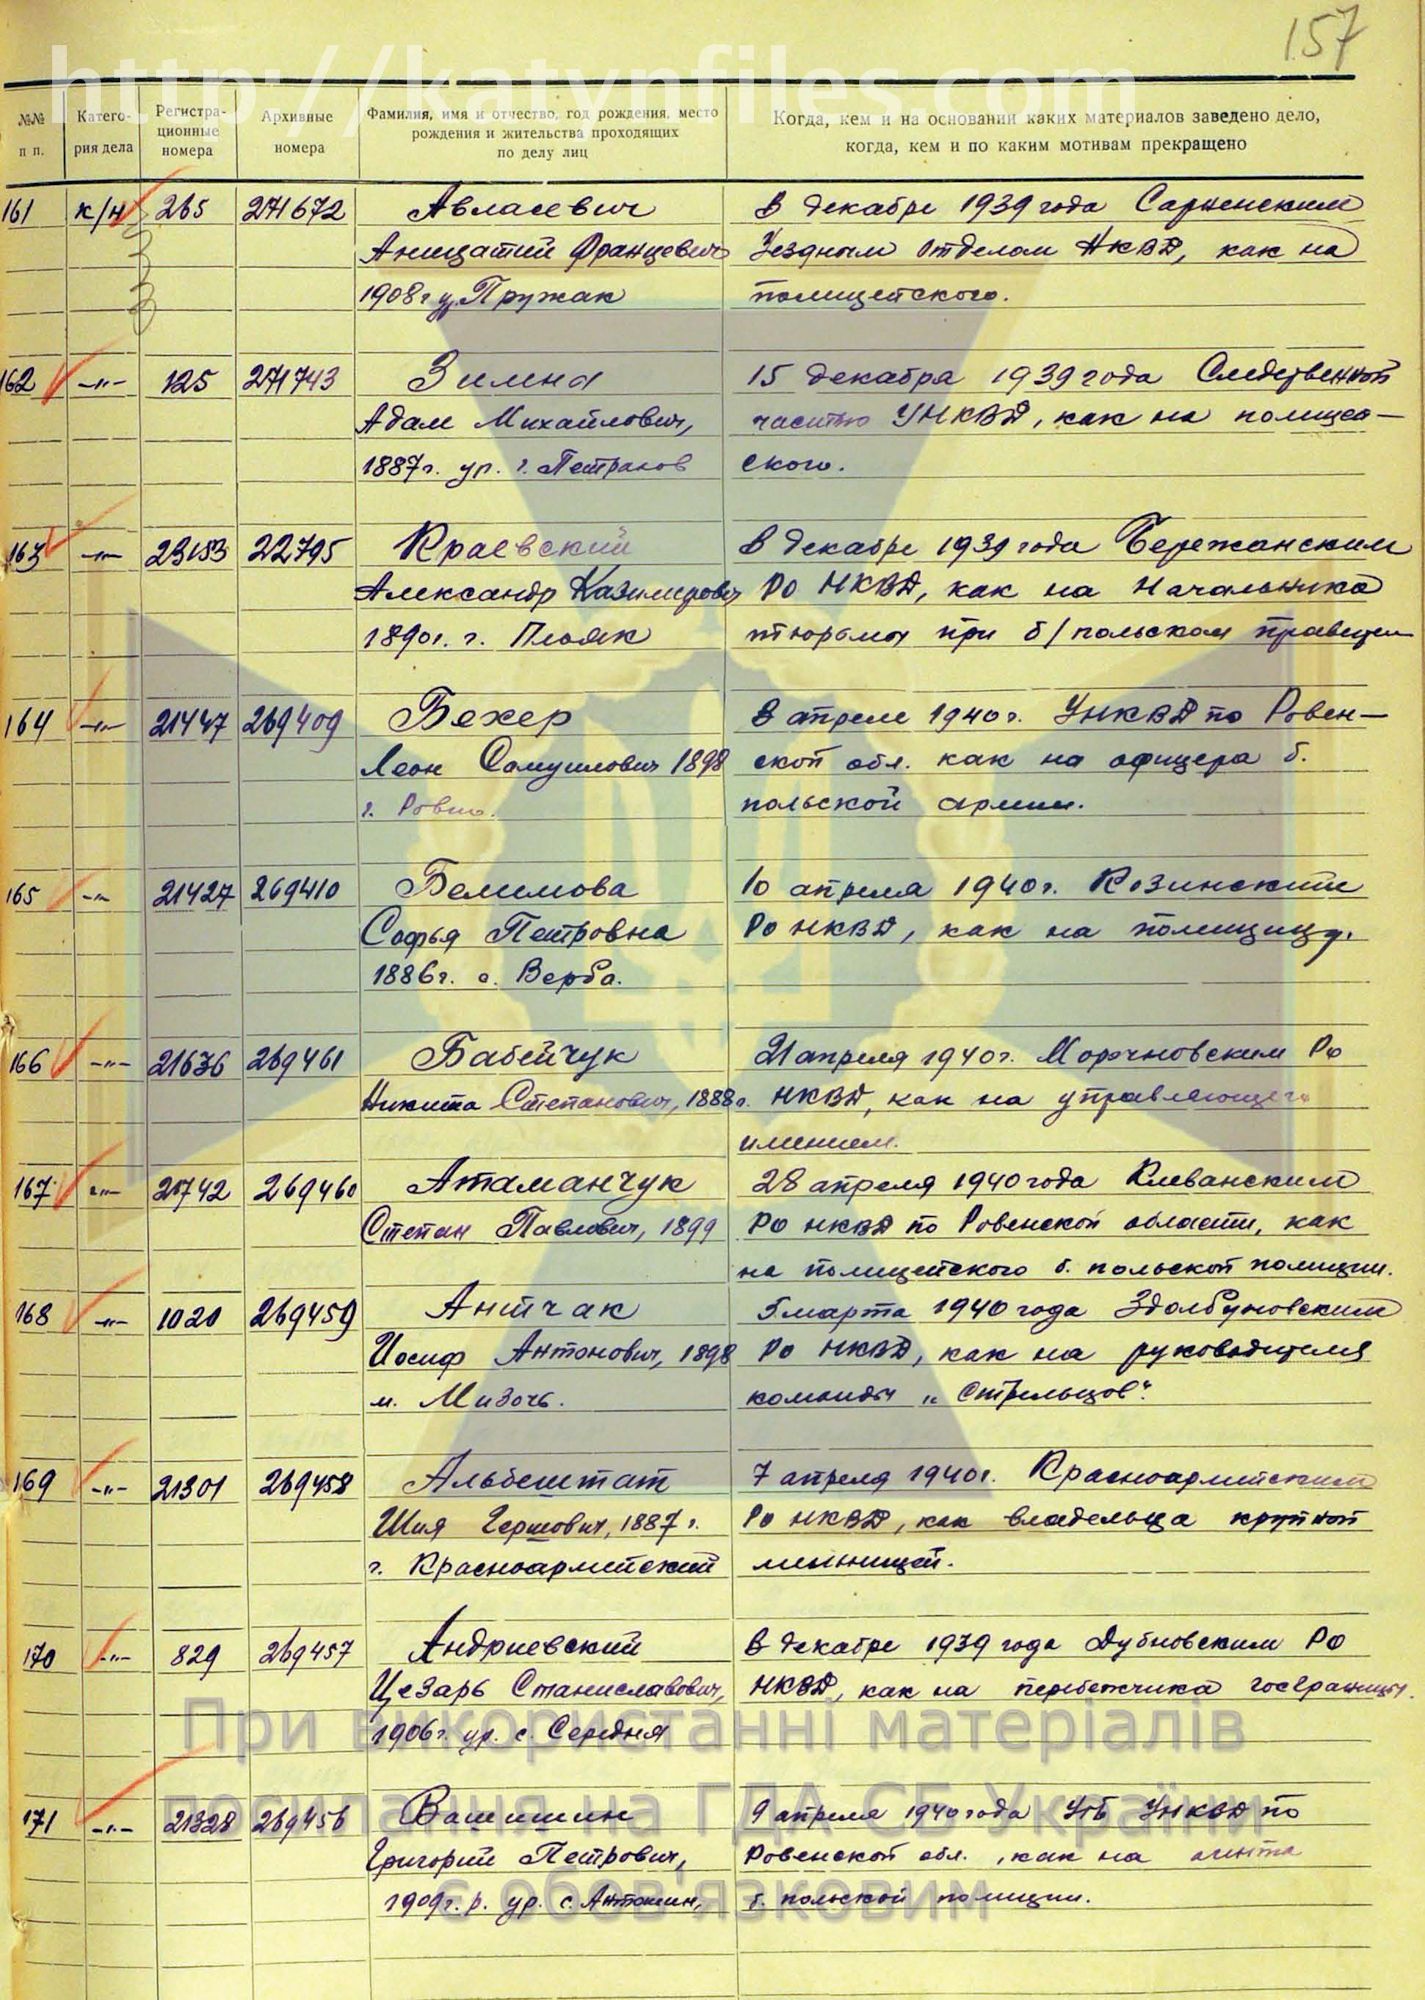 157
http://katynfiles.com
№№ п п.
Катего-
рия дела
Регистра-
ционные
номера
Архивные
номера
Фамилия, имя и отчество, год рождения, место
рождения и жительства проходящих
по делу лиц
Когда, кем и на основании каких материалов заведено дело,
когда, кем и по каким мотивам прекращено
161 к/н 265 271672 Авласевич В декабре 1939 года Сарненским
Францевич Уездным отделом НКВД, как на
1908 г. Пружак полицейского.
162 —"— 125 271743 Зимна 15 декабря 1939 года Следственной
Адам Михайлович, частью УНКВД, как на полицей—
1887 г. ур. г. Петраков ского.
163 —"— 23153 22795 Краевский В декабре 1939 года Бережанским
Александр Казимирович РО НКВД, как на Начальника
1890 г. г. тюрьмы при б/польском
164 —"— 21447 269409 Бехер В апреле 1940 г. УНКВД по Ровен—
Леон Самуилович 1898 ской обл. как на офицера б.
г. Ровно. польской армии.
165 —"— 21427 269410 Белимова 10 апреля 1940 г. Козинским
Софья Петровна РО НКВД, как на помещицу.
1886 г. с. Верба.
166 —"— 21636 269461 Бабейчук 21 апреля 1940 г. РО
Никита Степанович, 1888 г. НКВД, как на управляющего
имением.
167 —"— 21742 269460 Атаманчук 28 апреля 1940 года Клеванским
Степан Павлович, 1899 РО НКВД по Ровенской области, как
на полицейского б. польской полиции.
168 —"— 1020 269459 Антчак 5 марта 1940 года Здолбуновским
Иосиф Антонович, 1898 РО НКВД, как на руководителя
м. Мизочь. команды „Стрельцов".
169 —"— 21301 269458 Альбештат 7 апреля 1940 г. Красноармейским
Шия Гершович, 1887 г. РО НКВД, как владельца крупной
г. Красноармейский
170 —"— 829 269457 Андриевский В декабре 1939 года Дубновским РО
Цезарь Станиславович, НКВД, как на перебежчика госграницы.
1906 г. ур. с. Середня
171 —"— 21328 269456 Вашишин 9 апреля 1940 года УГБ УНКВД по
Григорий Петрович, Ровенской обл., как на агента
1909 г. р. ур. с. б. польской полиции.
При використанні матеріалів
посилання на ГДА СБ України
є обов'язковим